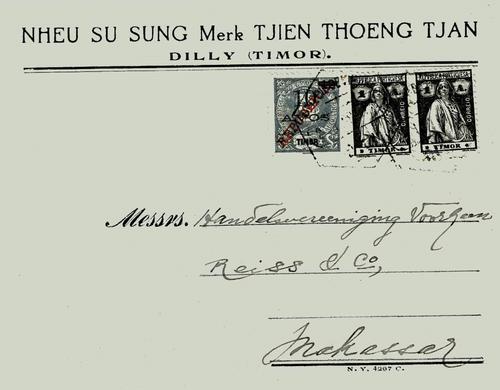 NHEU SU SUNG Merk TJIEN THOENG TJAN
DILLY (TIMOR).
REPUBLICA
TIMOR
1 1
CORREIO
TIMOR
1 1
CORREIO
TIMOR
Messrs. Handelsvereeniging Voorheen
Reiss & Co,
Makassar
N. Y. 4207 C.